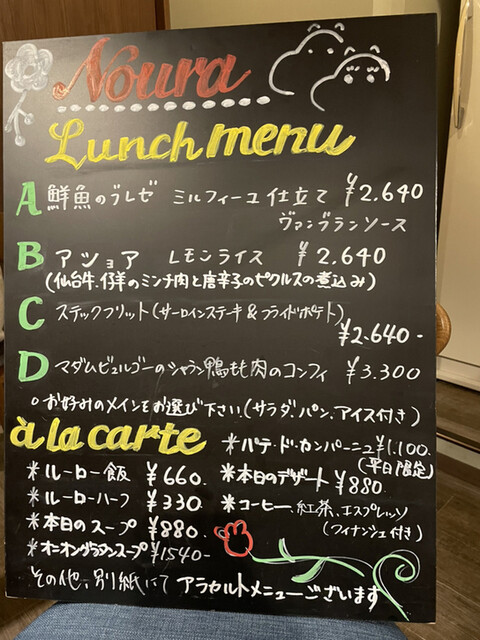 Noura
Lunch menu
A 鮮魚のブレゼ ミルフィーユ仕立て ¥2.640
ヴァンブランソース
B アショア レモンライス ¥2.640
(仙台牛、仔羊のミンチ肉と唐辛子のピクルスの煮込み)
C ステックフリット(サーロインステーキ&フライドポテト)
¥2.640-
D マダムビュルゴーのシャラン鴨もも肉のコンフィ ¥3.300
○お好みのメインをお選び下さい.(サラダ、パン、アイス付き)
à la carte
*パテ・ド・カンパーニュ¥1.100
(平日限定)
*ルーロー飯 ¥660.
*本日のデザート ¥880.
*ルーローハーフ ¥330
*コーヒー、紅茶、エスプレッソ
(フィナンシェ付き)
*本日のスープ ¥880
*オニオングラタンスープ ¥1540-
その他、別紙にて アラカルトメニューございます